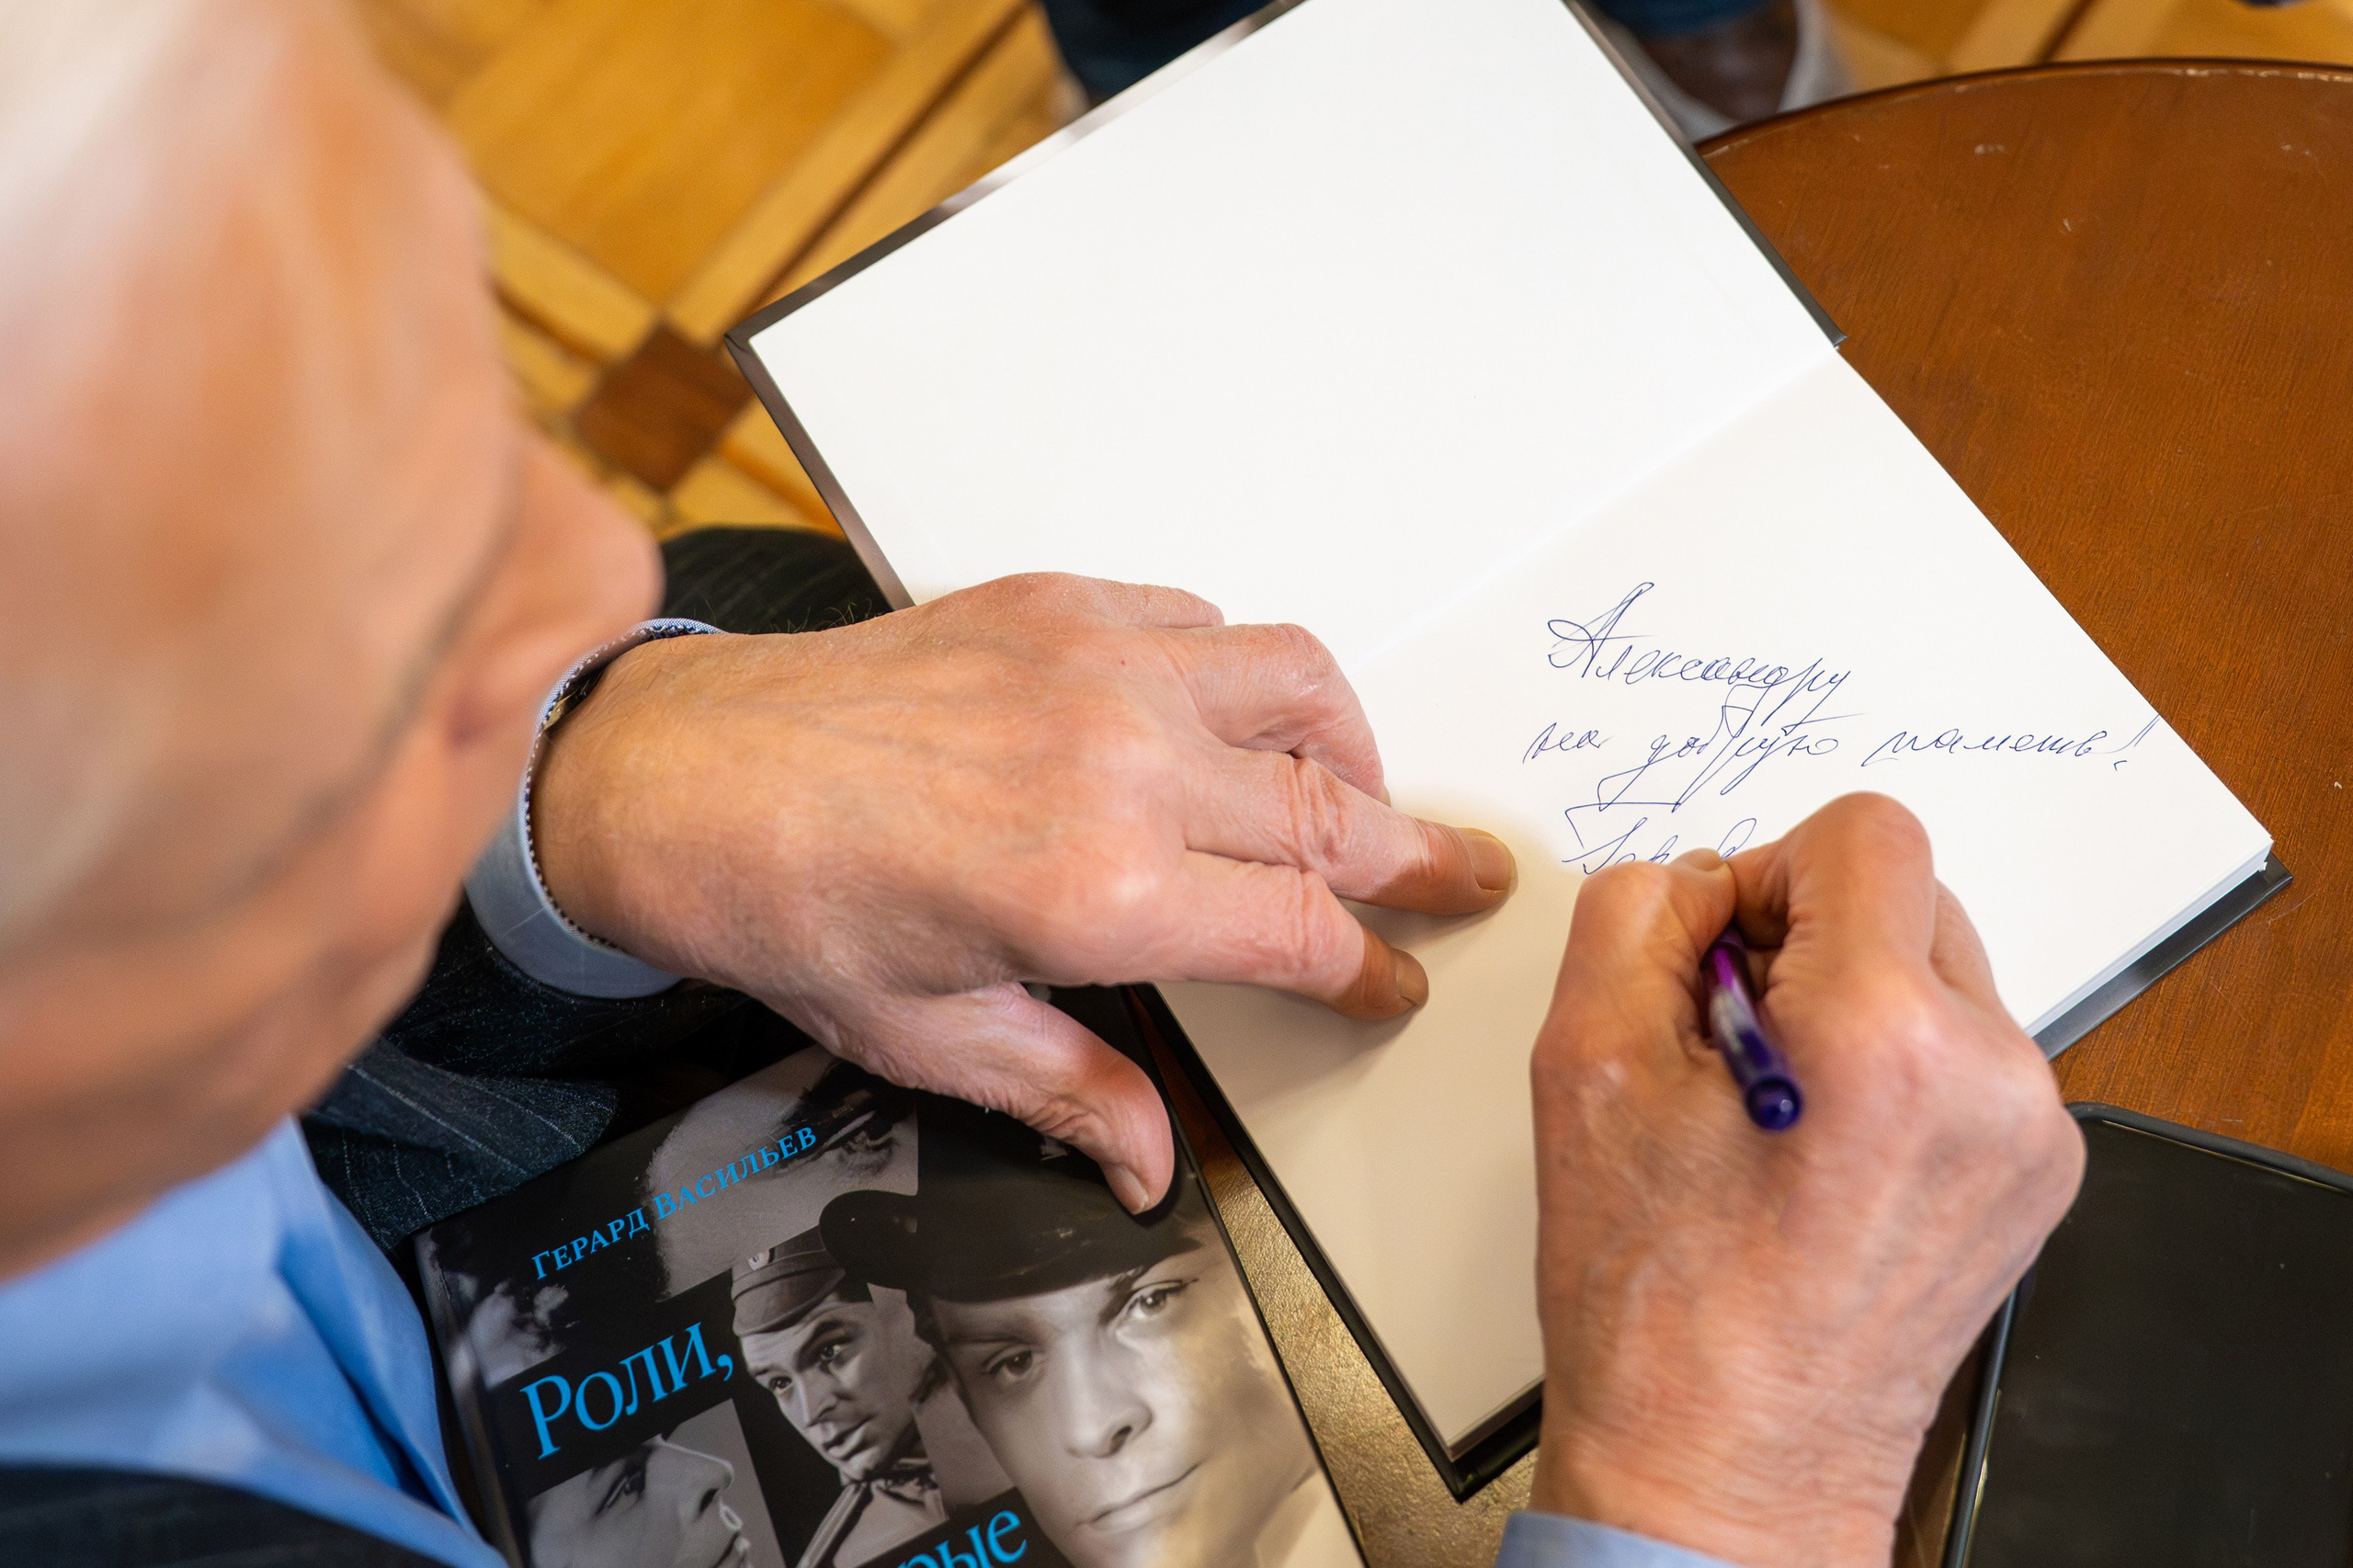 Александру
на добрую память!
Герард Васильев
Роли,
рые